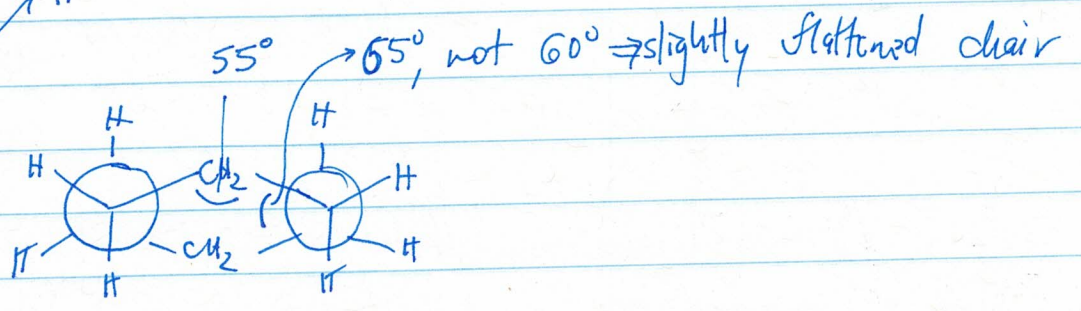 55° 55°, not 60° ⇒ slightly flattened chair
H H
H CH₂ H
H CH₂ H
H H